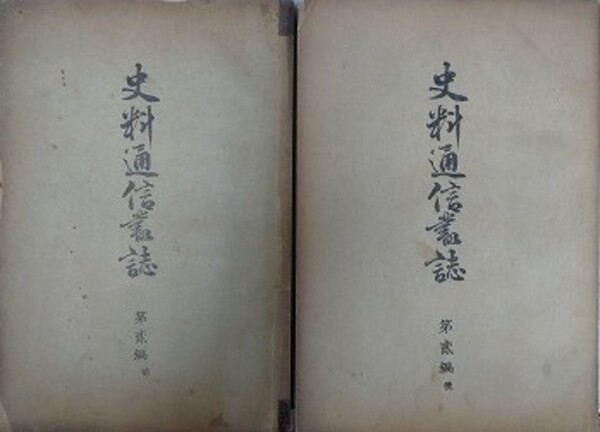 史料通信叢誌
第貳編 前
史料通信叢誌
第貳編 後